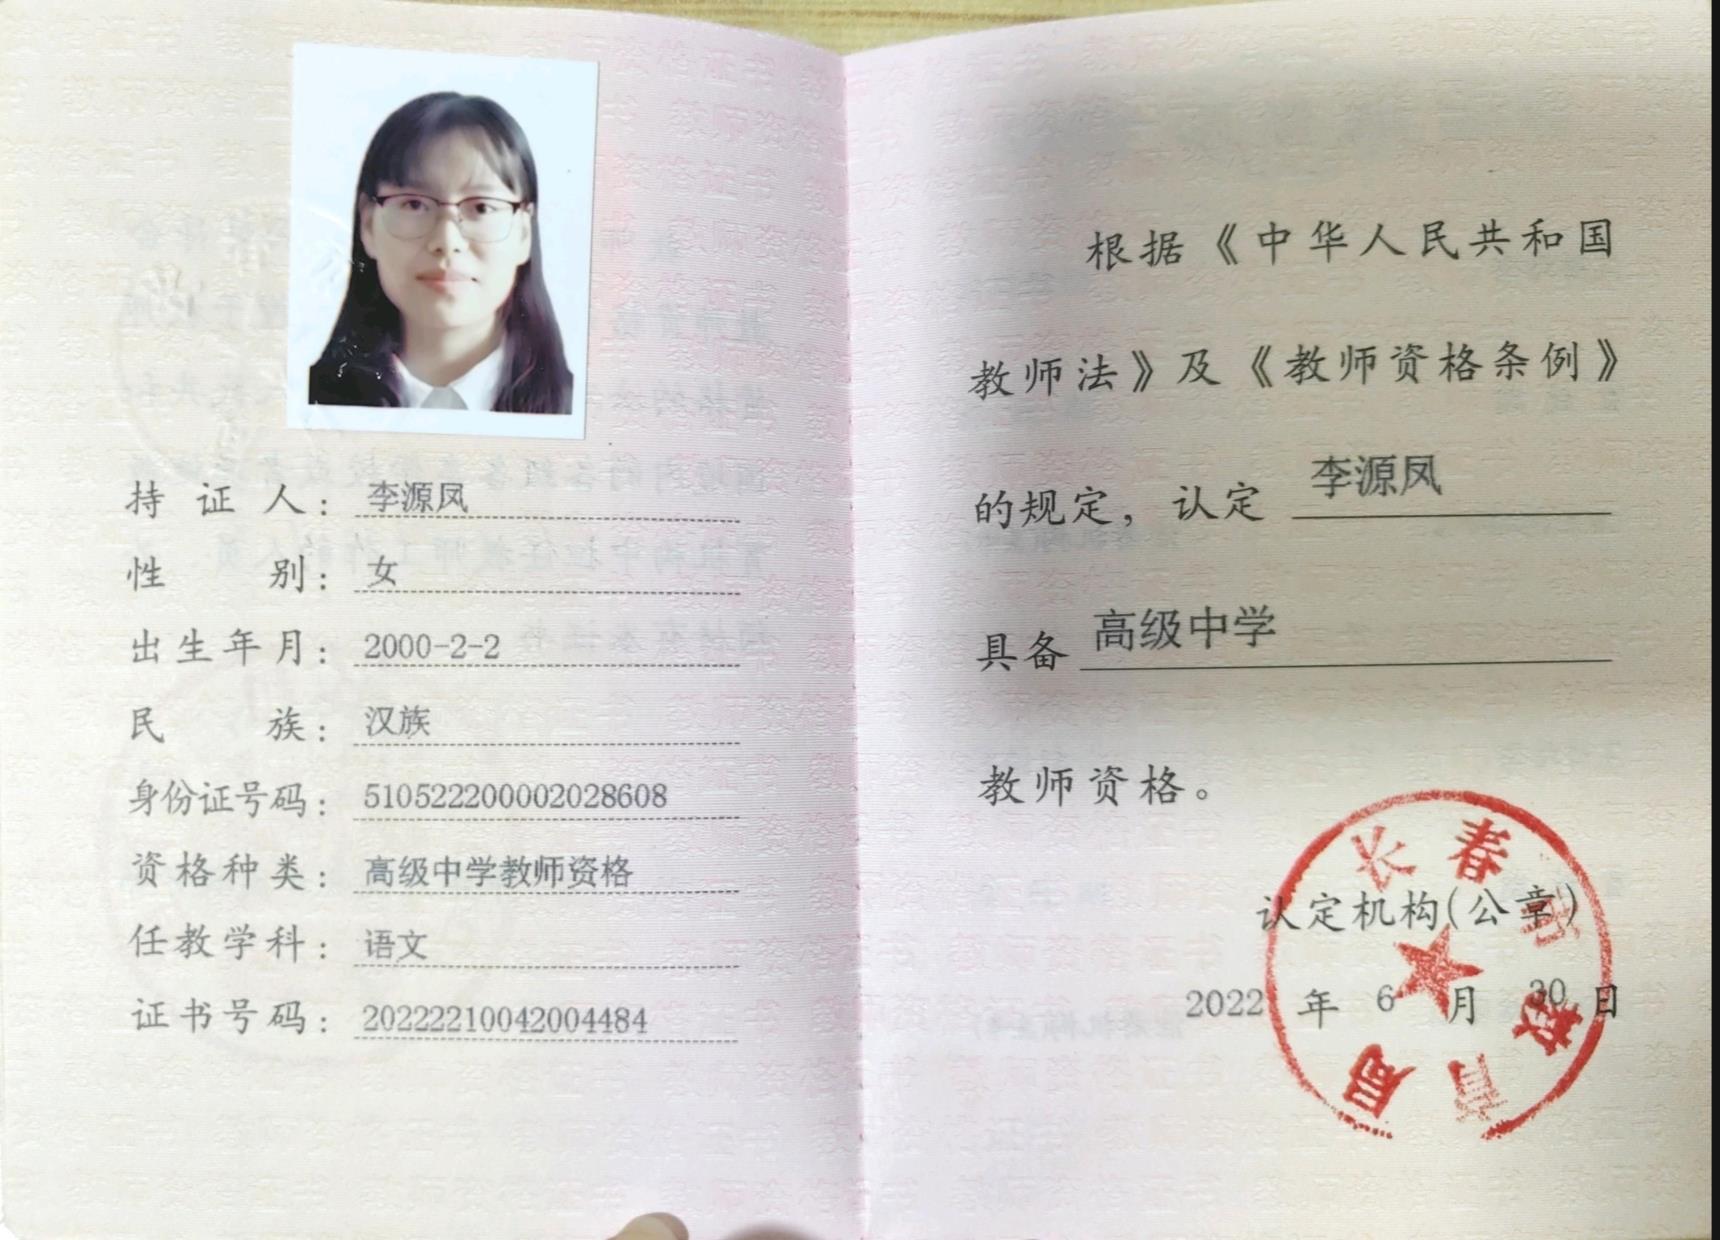 持证人：李源凤
性别：女
出生年月：2000-2-2
民族：汉族
身份证号码：510522200002028608
资格种类：高级中学教师资格
任教学科：语文
证书号码：20222210042004484
根据《中华人民共和国
教师法》及《教师资格条例》
的规定，认定 李源凤
具备 高级中学
教师资格。
认定机构(公章)
2022 年 6 月 30 日
长春 教育局